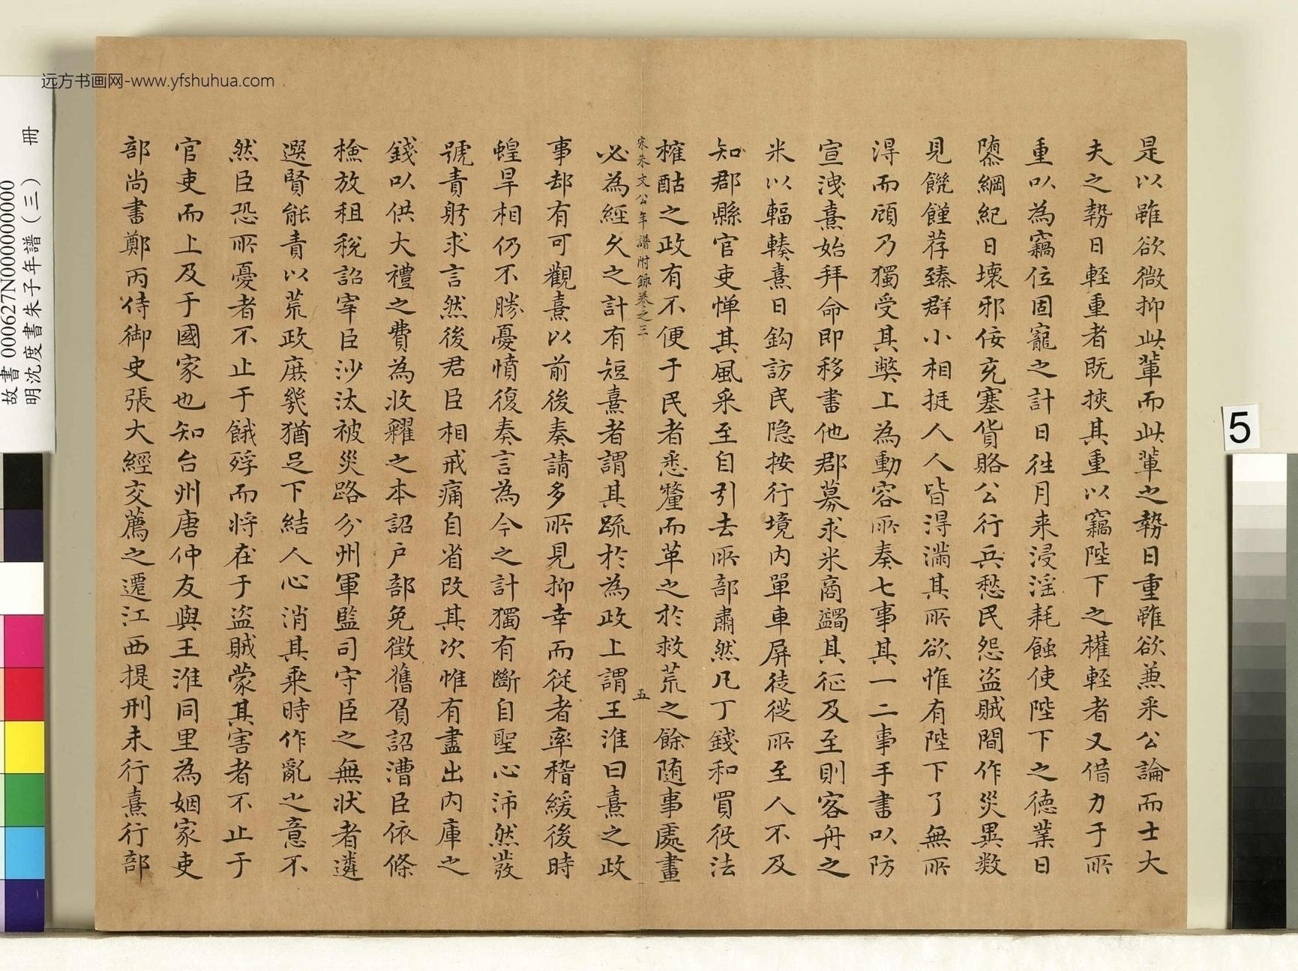 远方书画网-www.yfshuhua.com
是以雖欲微抑此輩而此輩之勢日重雖欲兼釆公論而士大
夫之勢日輕重者既挾其重以竊陛下之權輕者又借力于所
重以為竊位固寵之計日往月来浸淫耗蝕使陛下之德業日
隳綱紀日壞邪佞充塞貨賂公行兵愁民怨盜賊間作災異数
見饑饉荐臻群小相挺人人皆得滿其所欲惟有陛下了無所
得而頋乃獨受其弊上為動容所奏七事其一二事手書以防
宣洩熹始拜命即移書他郡募求米商蠲其征及至則客舟之
米以輻輳熹日鈎訪民隐按行境內單車屏徒從所至人不及
知郡縣官吏憚其風采至自引去所部肅然凡丁錢和買役法
榷酤之政有不便于民者悉釐而革之於救荒之餘随事處畫
宋朱文公年譜附錄卷之三
五
必為經久之計有短熹者謂其疏於為政上謂王淮曰熹之政
事却有可觀熹以前後奏請多所見抑幸而從者率稽緩後時
蝗旱相仍不勝憂憤復奏言為今之計獨有斷自聖心沛然發
號責躬求言然後君臣相戒痛自省改其次惟有盡出內庫之
錢以供大禮之費為收糴之本詔户部免徵舊負詔漕臣依條
檢放租稅詔宰臣沙汰被災路分州軍監司守臣之無状者遴
選賢能責以荒政庶幾猶足下結人心消其乘時作亂之意不
然臣恐所憂者不止于餓殍而将在于盜賊蒙其害者不止于
官吏而上及于國家也知台州唐仲友與王淮同里為姻家吏
部尚書鄭丙侍御史張大經交薦之遷江西提刑未行熹行部
故書000627N000000000
明沈度書朱子年譜(三) 冊
5